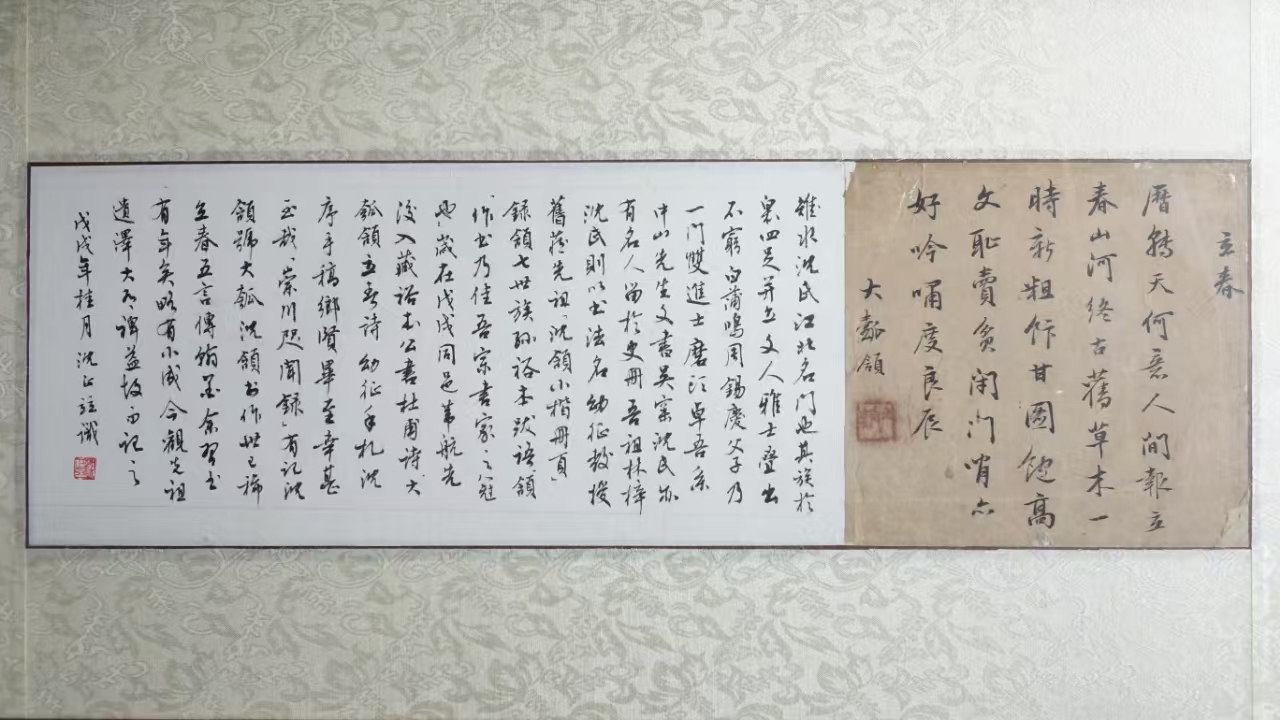 立春
曆轉天何意人間報立
春山河終古舊草木一
時新粗飰甘圖飽高
文恥賣貧閉門
好吟哺度良辰
大瓠領
雉水沈氏江北名門也其族於
四足并立文人雅士疊出
不窮白蒲鳴周錫慶父子乃
一門雙進士磨江草吾系
中山先生文書吴宓沈氏亦
有名人留於史冊吾祖林梓
沈氏則以書法名幼征教授
舊藏先祖沈領小楷冊頁
錄領七世族孫裕本跋語領
作書乃佳吾宗書家之冠
也歲在戊戌同邑韋航先
後入藏裕本公書杜甫詩大
瓠領立春詩幼征手札沈
序手稿鄉賢畢至幸甚
至哉崇川咫聞錄有記沈
領號大瓠沈領書作世已稀
立春五言傳餘習書
有年矣略有小成今觀先祖
遺澤大有裨益故而記之
戊戌年桂月沈識